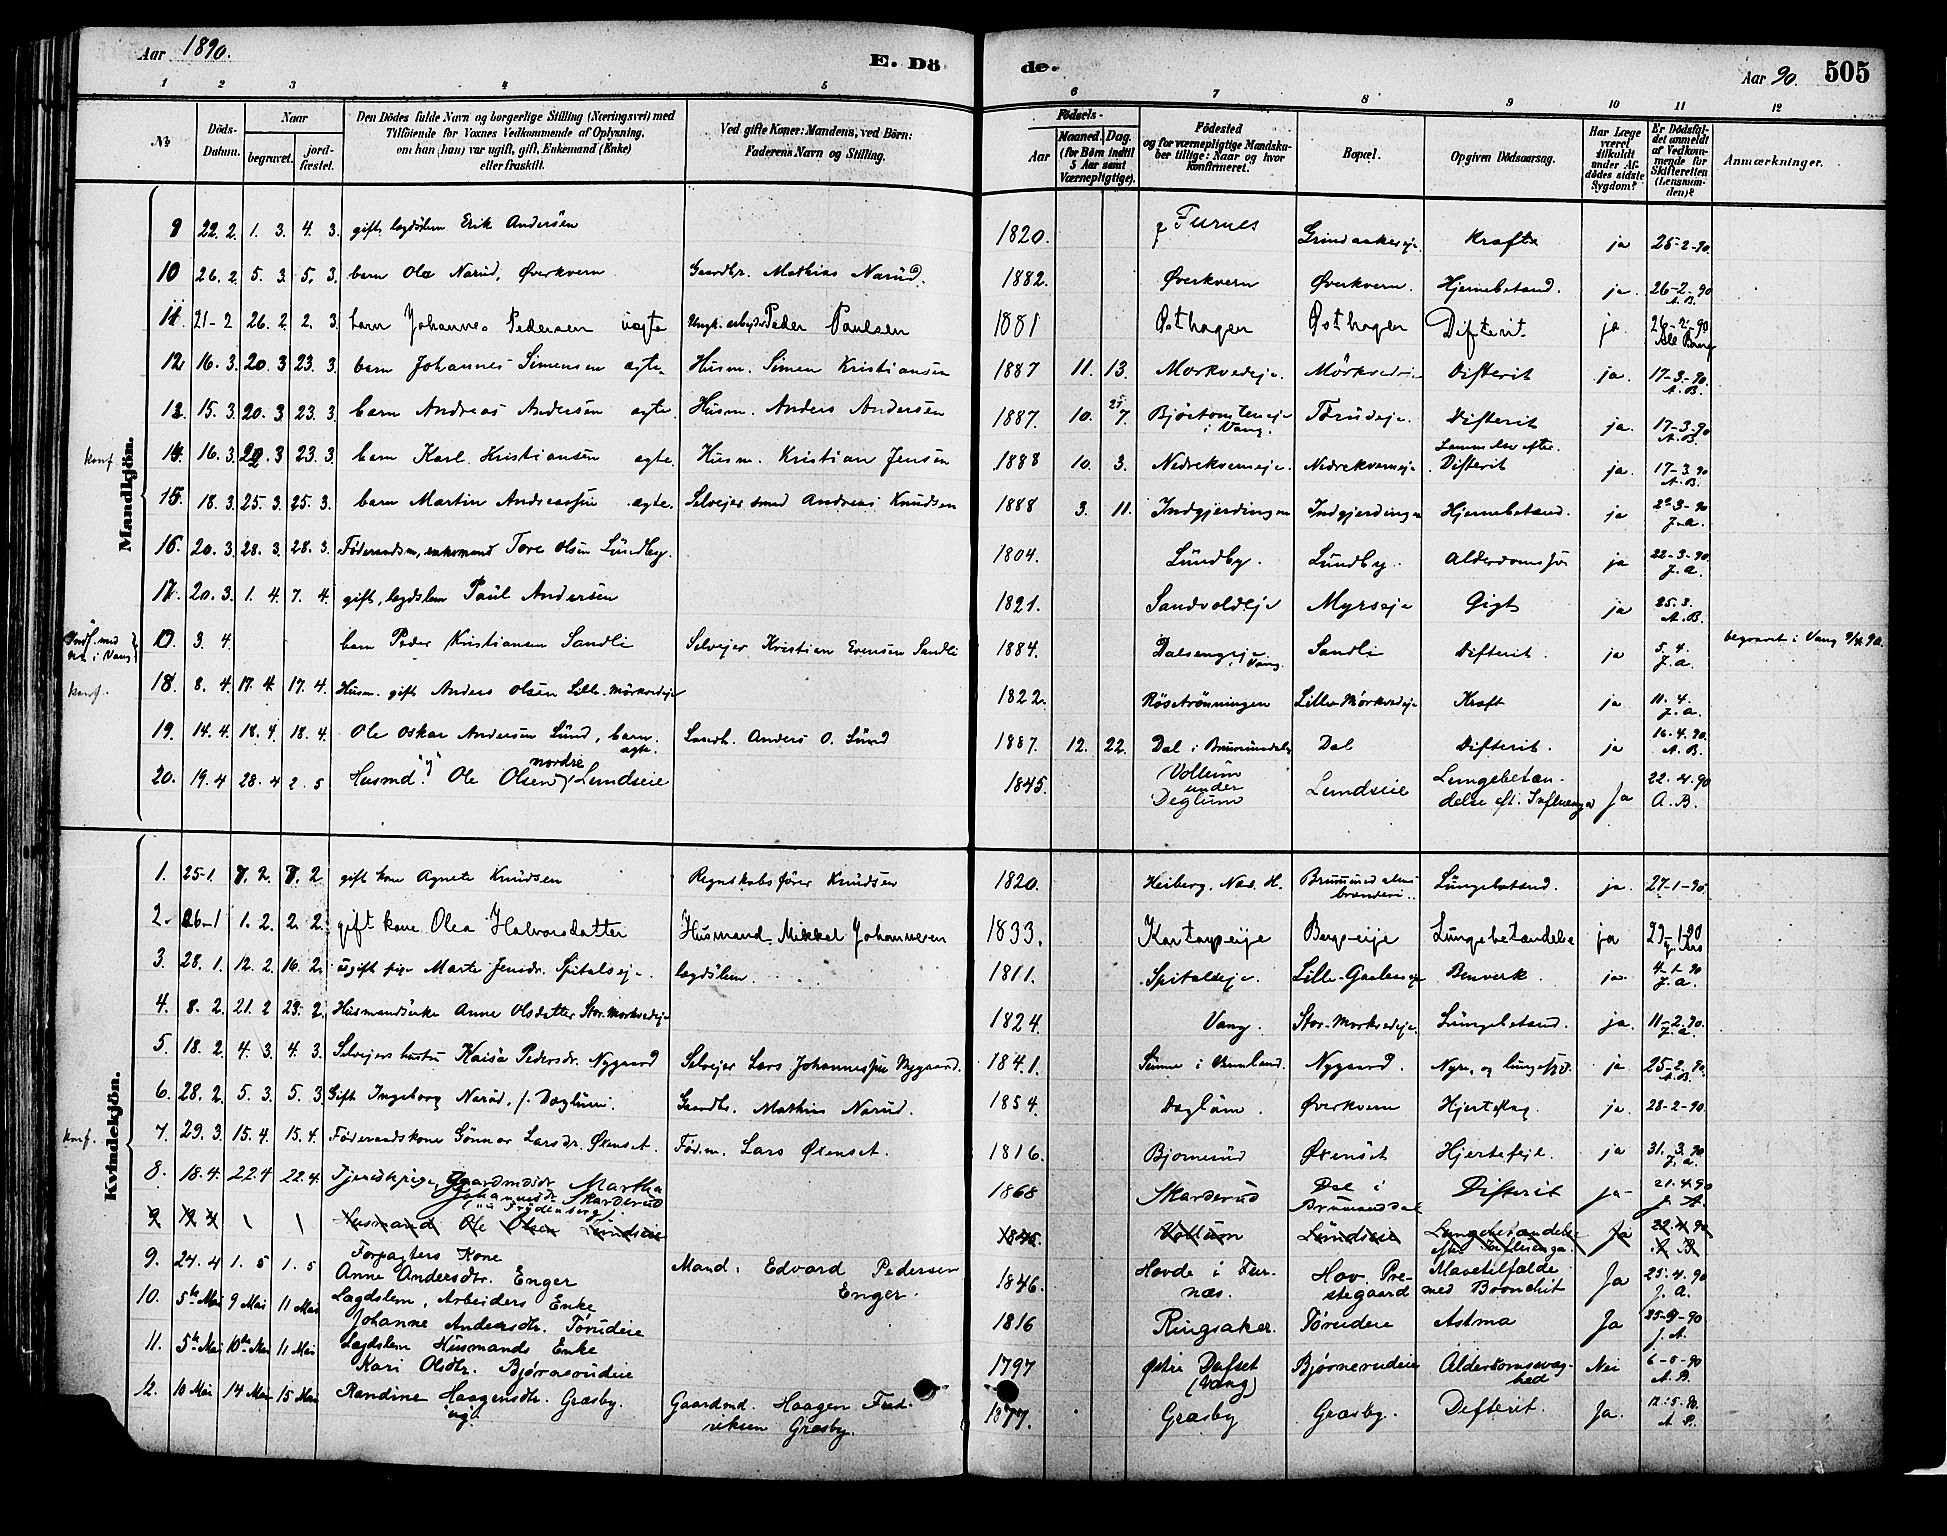 Aar 1890.
E. Dö
de.
Aar 90.
505
1 2 3 4 5 6 7 8 9 10 11 12
No
Döds-Datum.
Naar
begravet.
jordfæstet.
Den Dödes fulde Navn og borgerlige Stilling (Næringsvei) med
Tilföiende for Voxnes Vedkommende af Oplysning,
om han (hun) var ugift, gift, Enkemand (Enke)
eller fraskilt.
Ved gifte Koner: Mandens, ved Börn:
Faderens Navn og Stilling.
Födsels-
Aar
Maaned. Dag.
(for Börn indtil
5 Aar samt
Værnepligtige).
Födested
og for værnepligtige Mandskaber tillige: Naar og hvor
konfirmeret.
Bopæl.
Opgiven Dödsaarsag.
Har Læge
været
tilkaldt
under Afdödes sidste
Sygdom?
Er Dödsfaldet anmeldt
af Vedkommende for
Skifteretten
(Lensmanden)?
Anmærkninger.
Mandkjön.
9 22. 2. 1. 3. 4. 3. gift, lægdslem Erik Andersen 1820. Furnes Grindaakereje Kræft ja 25-2-90
10 26. 2. 5. 3. 5. 3. barn Ole Narud, Øverkvern Gaardbr. Mathias Narud. 1882. Øverkvern Øverkvern. Hjernebetænd. ja. 26-2-90 A.B.
11 21-2 26. 2. 2. 3. barn Johannes Pedersen uægte Ungk. arbejder Peder Paulsen 1881 Østhagen Østhagen Difterit ja. 26-2-90
12 16. 3. 20. 3 23. 3. barn Johannes Simensen ægte Husm. Simen Kristiansen 1887 11. 13. Mørkvedeje. Mörkvedeje Difterit ja. 17-3-90. A.B.
13. 15. 3. 20. 3 23. 3. barn Andreas Andersen ægte. Husm. Anders Andersen 1887. 10. i Vang. Difterit ja. 17-3-90 A.B.
konf 14. 16. 3. 22. 3 23. 3. barn Karl Kristiansen ægte. Husm. Kristian Jensen 1888 10. 3. Nedrekverneje. Nedrekverneje Difterit ja. 17-3. 90 A.B.
15. 18. 3. 25. 3. 25. 3. barn Martin Andreassen ægte. Selvejer smed Andreas Knudsen 1888 3. 11. Indgjerdingen Indgjerdingen Hjernebetænd. ja 22-3-90 J.A.
16. 20. 3. 28. 3. 28. 3. Föderaadsm., enkemand Tore Olsen Lundby. 1804. Lundby. Lundby. ja 22-3-90 J.A.
17. 20. 3. 1. 4. 7. 4. gift, lægdslem Paul Andersen 1821. Sandvoldeje Myrseje Gigt ja 25.3. A.B.
i Vang 3. 4. barn Peder Kristiansen Sandli Selvejer Kristian Evensen Sandli 1884. i Vang. Sandli Difterit. ja 5. 4. J.A. begravet i Vang
konf. 18. 8. 4. 17. 4. 17. 4. Husm. gift Anders Olsen Lille-Mörkvedeje 1822. Lille-Mörkvedeje Kræft ja 11. 4. J.A.
19. 14. 4. 18. 4. 18. 4. Ole Oskar Andersen Lund, barn. ægte. Landh. Anders O. Lund 1887. 12. 22. Dal i Brumunddal Dal Difterit. ja 16. 4. 90. A.B.
20. 19. 4 28. 4 2. 5 Husmd. Ole Olsen nordre Lundseie 1845. Vollum under Deglum Lundseie Lungebetændelse eft. Influenza Ja 22. 4. 90 A.B.
Kvindekjön.
1. 25-1. 7. 2. 7. 2 gift kone Agnete Knudsen Regnskabsfører Knudsen 1820. Heiberg, Nes. H. Brumunddalens brænderi. Lungebetænd. ja. 27-1-90
2. 26-1 1. 2. 2. 2. gift kone Olea Halvorsdatter Husmand Mikkel Johannesen 1833. Bergseije Lungebetændelse ja
3. 28. 1. 12. 2. 16. 2. ugift pige Marte Jensdr. Spitalseje. lægdslem. 1811. Spitalseje. Lille-Gaalaaseje Benverk. ja. J.A.
4. 8. 2. 21. 2 23. 2. Husmandsenke Anne Olsdatter Stor-Mørkvedeje 1824. Vang. Stor-Mørkvedeje. Lungebetænd. ja. 11-2-90. J.A.
5. 18. 2. 4. 3. 4. 3. Selvejers hustru Kaisa Pedersdr. Nygaard Selvejer Lars Johannessen Nygaard. 1841. Sunne i Vermland. Nygaard. Nyre og lunge ja 25-2-90. A.B.
6. 28. 2. 5. 3. 5. 3 Gift Ingeborg Narud, f. Dæglum. Gaardbr. Mathias Narud. 1854. Dæglum. Øverkvern Hjerteslag ja. 28-2-90.
konf. 7. 29. 3. 15. 4. 15. 4. Föderaadskone Gunnor Larsdr. Øxenset. Föd.m. Lars Øxenset. 1816. Bjørnerud Øxenset Hjertefeil. ja 31. 3. 90 J.A.
8. 18. 4. 22. 4 22. 4. Tjenestepige, Gaardmdsdr. Martha
Johannesdr. Skarderud 1868 Skarderud Dal i Brumunddal Difterit ja- 21. 4. 90 J.A.
9 19 4 \ \ Husmand Ole Olsen Lundseie 1845 Vollum Lundseie Lungebetændelse efter Influenza Ja 22. 4. 90 A.B.
9. 24. 4 1. 5 1. 5 Forpagters Kone
Anne Andersdtr. Enger Mand: Edvard Pedersen Enger. 1846. Hovde i Furnæs. Hov. Prestegaard Mavetilfælde med Bronchit Ja 25. 4. 90 J.A.
10. 5te Mai 9 Mai 11 Mai Lægdslem, Arbeiders Enke
Johanne Andersdtr. Törudeie 1816 Ringsaker. Törudeie Astma Ja J.A.
11. 5te Mai 10de Mai 11 Mai Lægdslem Husmands Enke
Kari Olsdtr. Bjørnerudeie 1797 østre Dufset (Vang) Bjørnerudeie Alderdomssvaghed Nei 6-5-90 A.B.
12. 10 Mai 14 Mai 15 Mai Randine Haagensdtr. Græsby. ug. Gaardmd. Haagen Fredriksen Græsby. 1877. Græsby Græsby. Difterit. Ja. 12. 5. 90. A.B.